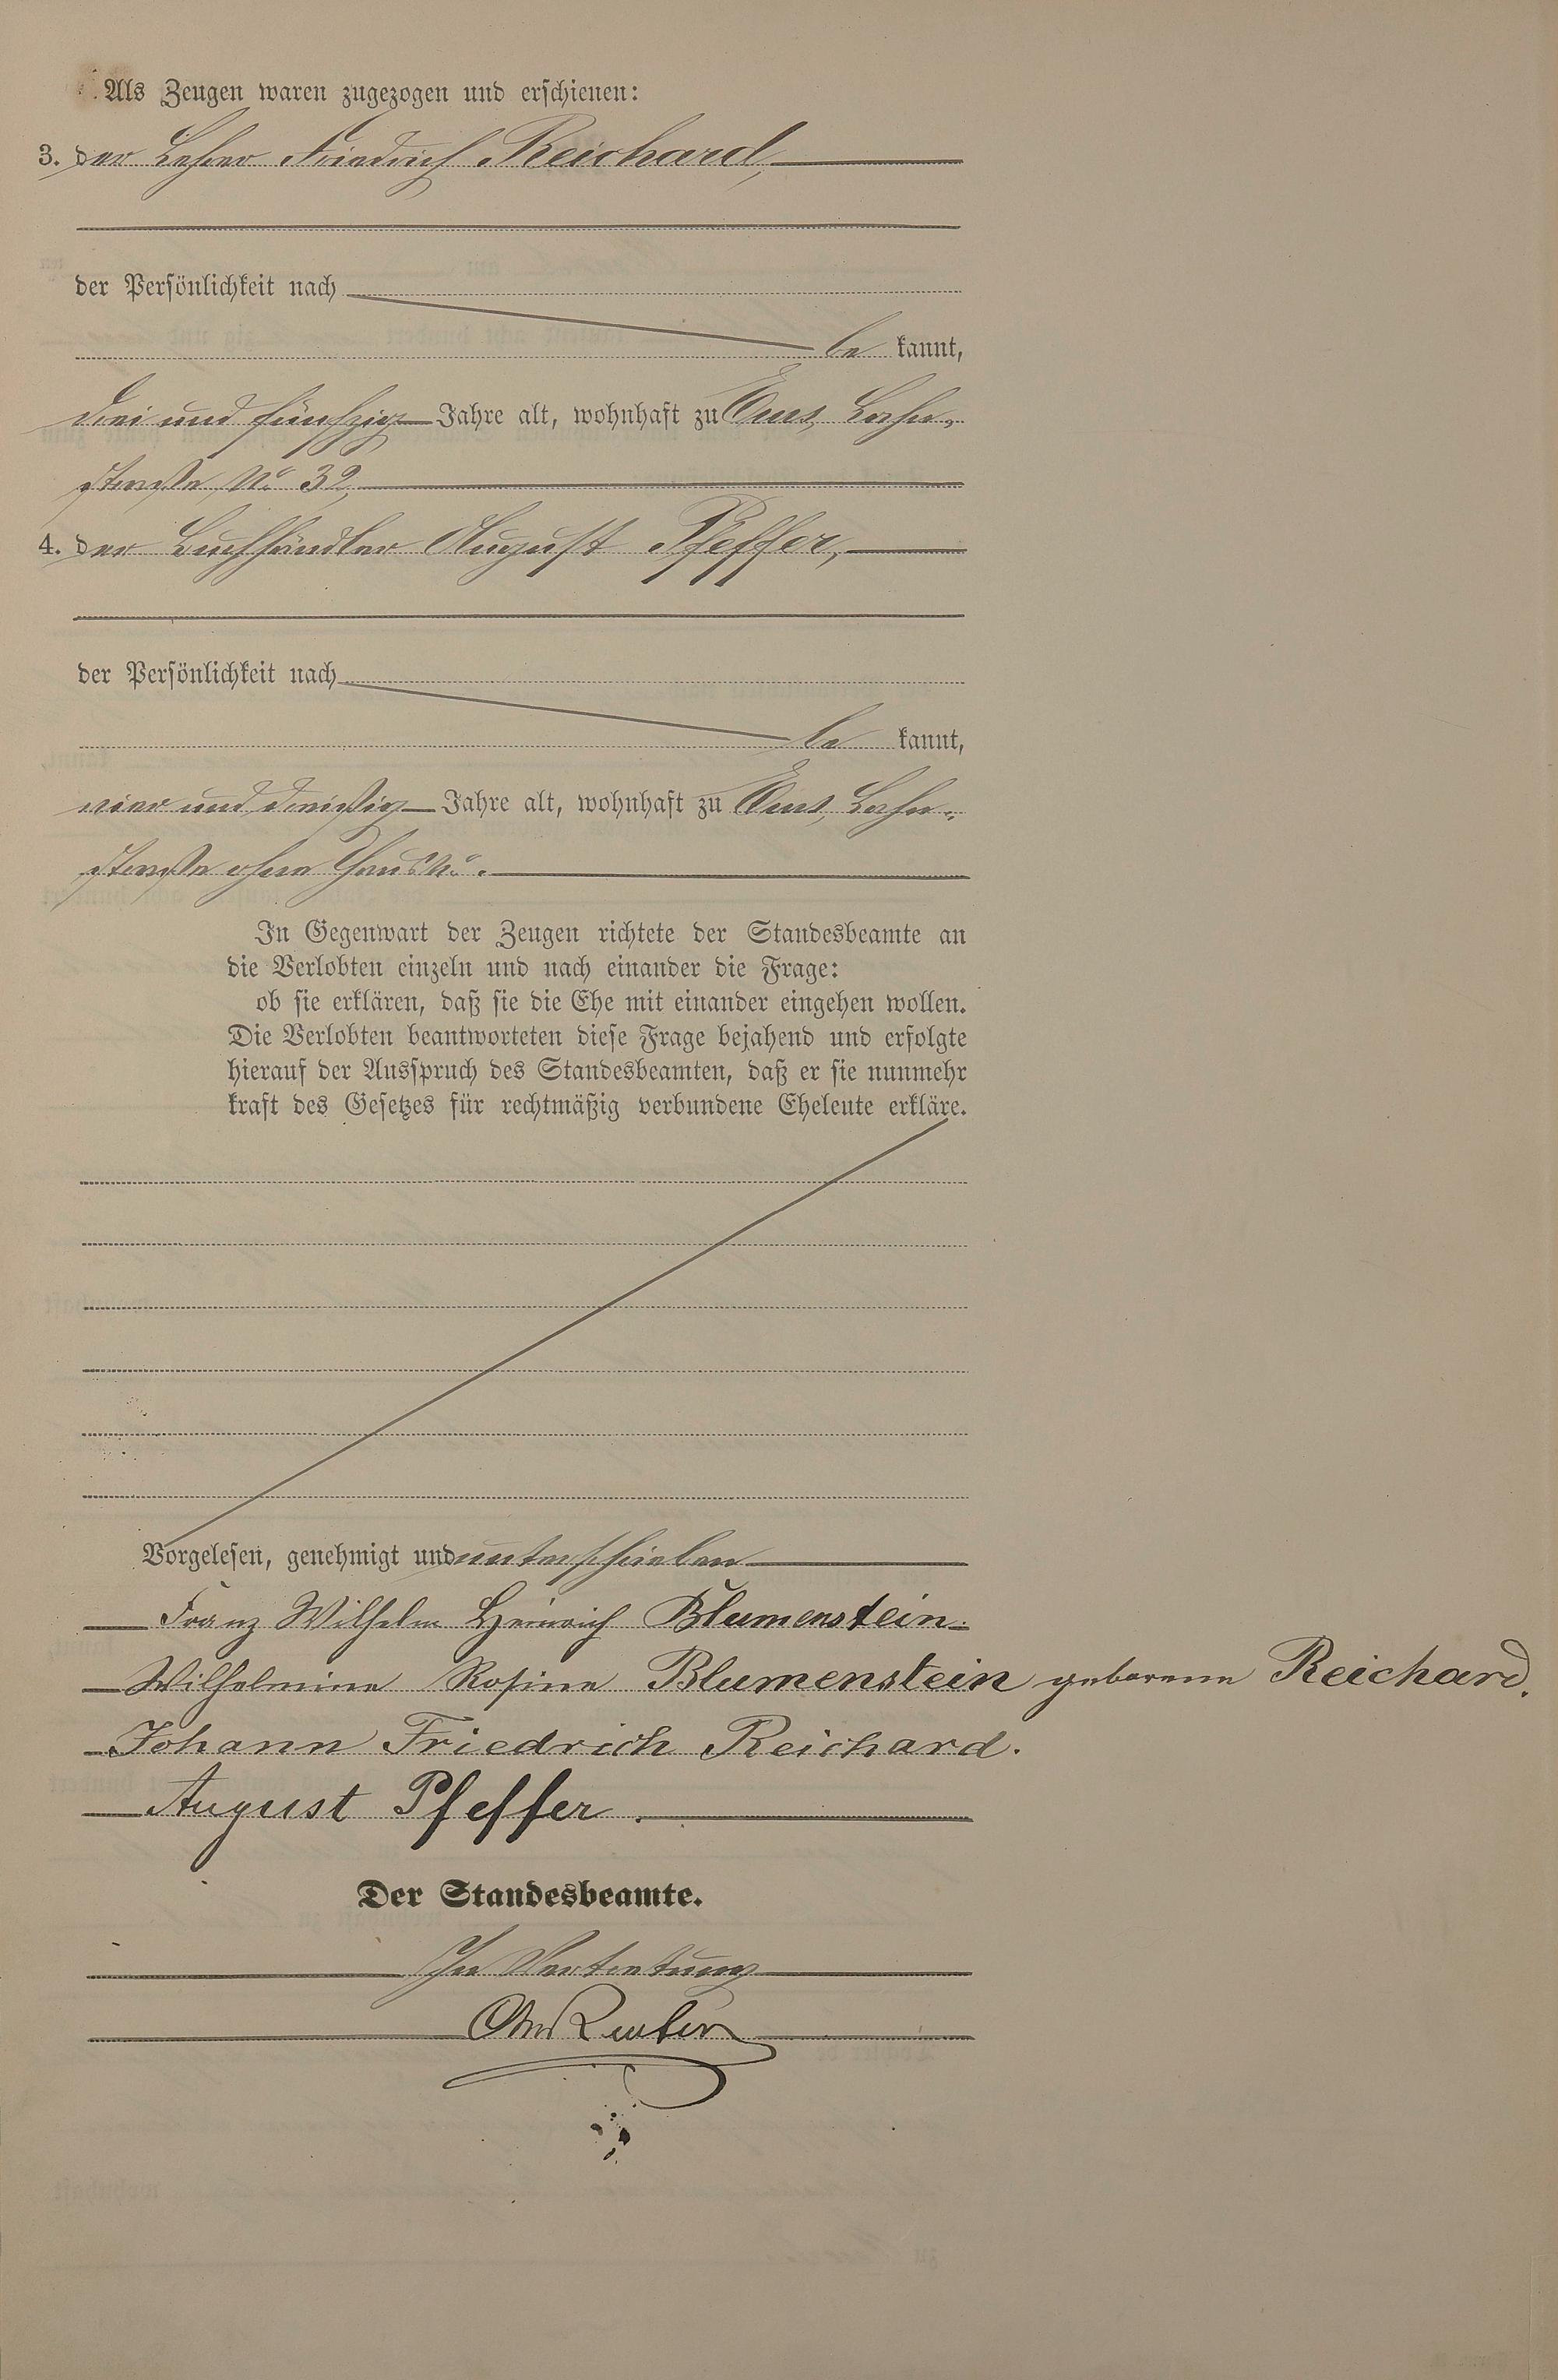 Als Zeugen waren zugezogen und erschienen:
3. der Lehrer Friedrich Reichard,
der Persönlichkeit nach
be kannt,
drei und fünfzig Jahre alt, wohnhaft zu Ems, Lahn-
straße No 32,
4. der Buchhändler August Pfeffer,
der Persönlichkeit nach
be kannt,
vier und dreißig Jahre alt, wohnhaft zu Ems, Lahn-
straße ohne Haus No.
In Gegenwart der Zeugen richtete der Standesbeamte an
die Verlobten einzeln und nach einander die Frage:
ob sie erklären, daß sie die Ehe mit einander eingehen wollen.
Die Verlobten beantworteten diese Frage bejahend und erfolgte
hierauf der Ausspruch des Standesbeamten, daß er sie nunmehr
kraft des Gesetzes für rechtmäßig verbundene Eheleute erkläre.
Vorgelesen, genehmigt und unterschrieben
Franz Wilhelm Heinrich Blumenstein.
Wilhelmine Rosine Blumenstein geborene Reichard.
Johann Friedrich Reichard.
August Pfeffer.
Der Standesbeamte.
In Vertretung